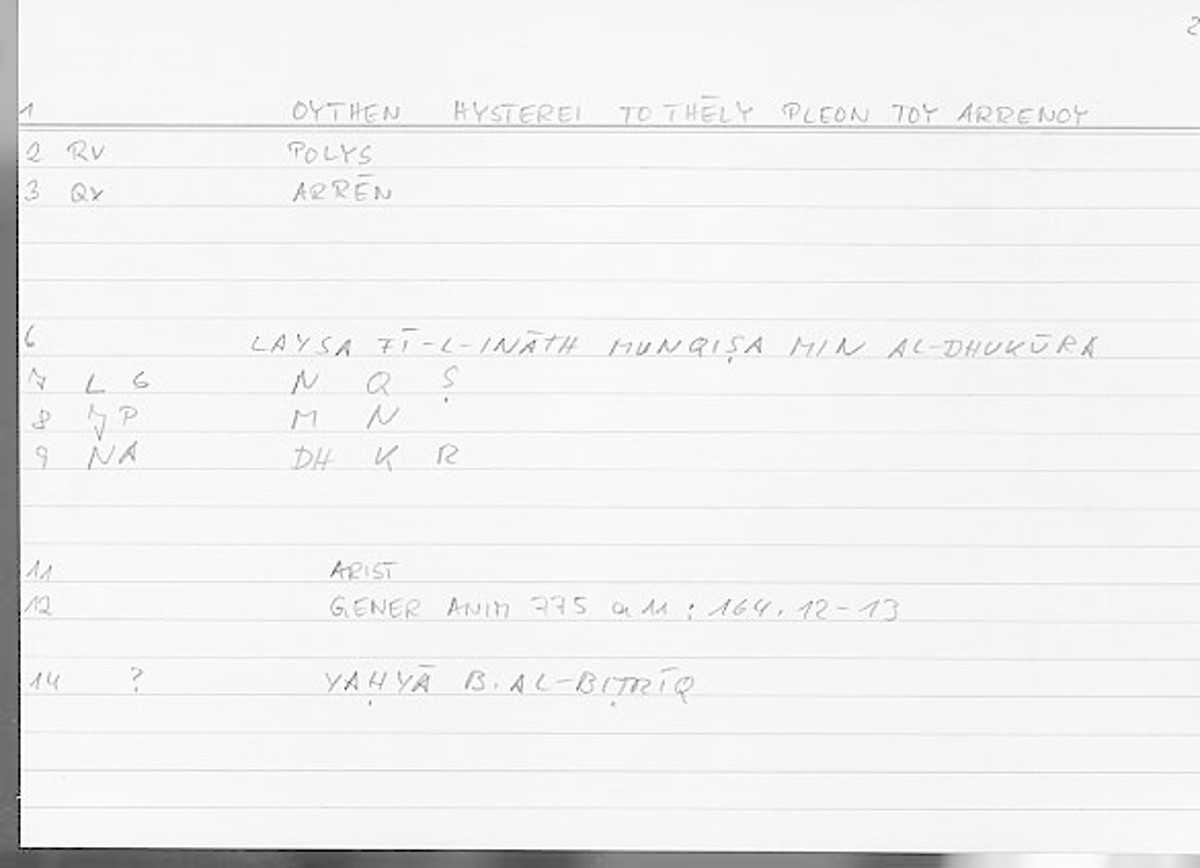 2
1 OYTHEN HYSTEREI TO THĒLY PLEON TOY ARRENOY
2 RV POLYS
3 QX ARRĒN
6 LAYSA FĪ-L-INĀTH MUNQIṢA MIN AL-DHUKŪRA
7 L G N Q Ṣ
8 JP M N
9 NA DH K R
11 ARIST
12 GENER ANIM 775 a 11 : 164.12-13
14 ? YAḤYĀ B. AL-BIṬRĪQ